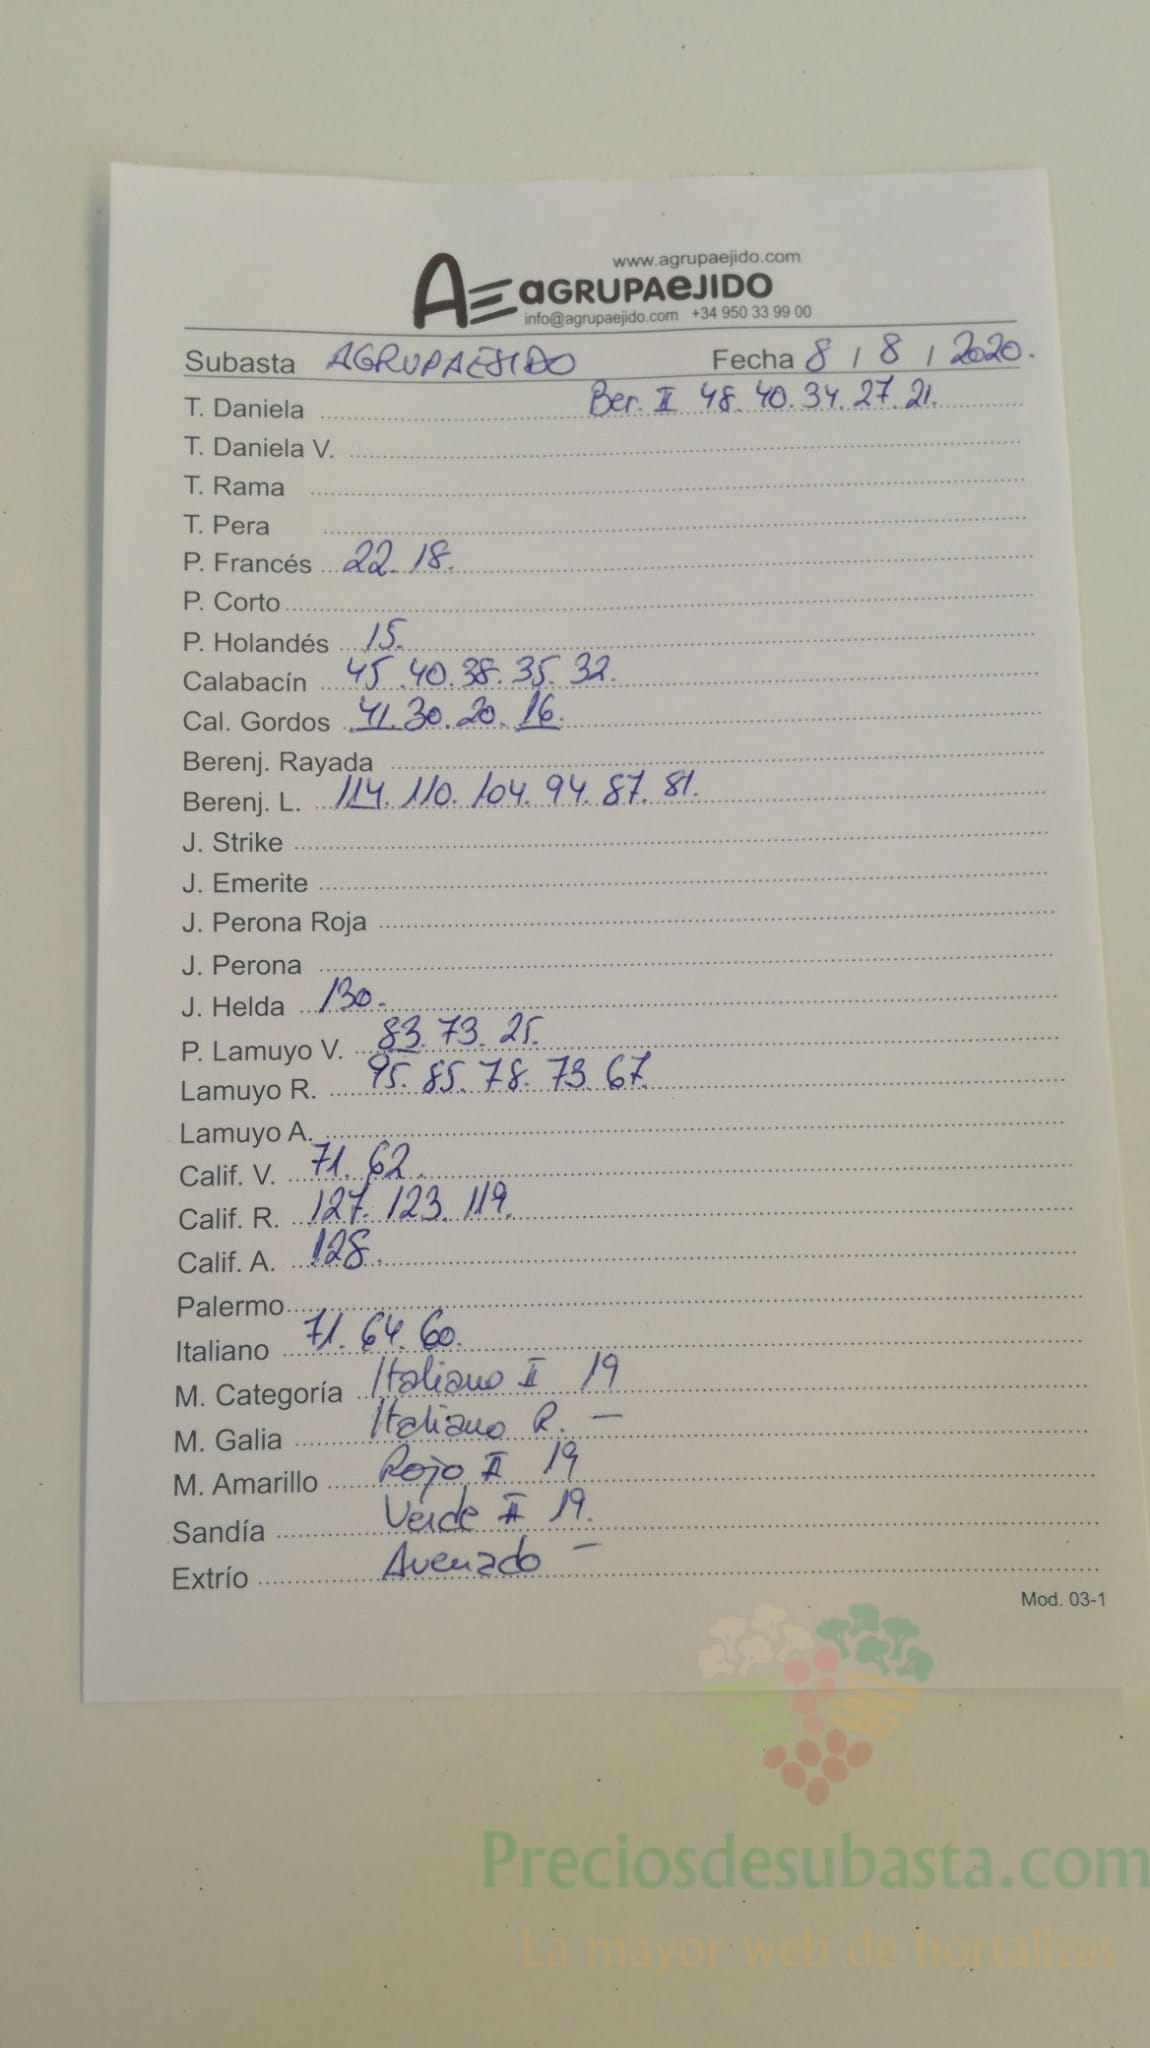 www.agrupaejido.com
AE aGRUPAeJIDO
info@agrupaejido.com +34 950 33 99 00
Subasta AGRUPAEJIDO Fecha 8 / 8 / 2020.
T. Daniela Ber. II 48. 40. 34. 27. 21.
T. Daniela V.
T. Rama
T. Pera
P. Francés 22. 18.
P. Corto
P. Holandés 15.
Calabacín 45. 40. 38. 35. 32.
Cal. Gordos 41. 30. 20. 16.
Berenj. Rayada
Berenj. L. 114. 110. 104. 94. 87. 81.
J. Strike
J. Emerite
J. Perona Roja
J. Perona
J. Helda 130.
P. Lamuyo V. 83. 73. 25.
Lamuyo R. 95. 85. 78. 73. 67.
Lamuyo A.
Calif. V. 71. 62.
Calif. R. 127. 123. 119.
Calif. A. 128.
Palermo
Italiano 71. 64. 60.
M. Categoría Italiano II 19
M. Galia Italiano R. —
M. Amarillo Rojo II 19
Sandía Verde II 19.
Extrío Asurado —
Mod. 03-1
Preciosdesubasta.com
La mayor web de hortalizas